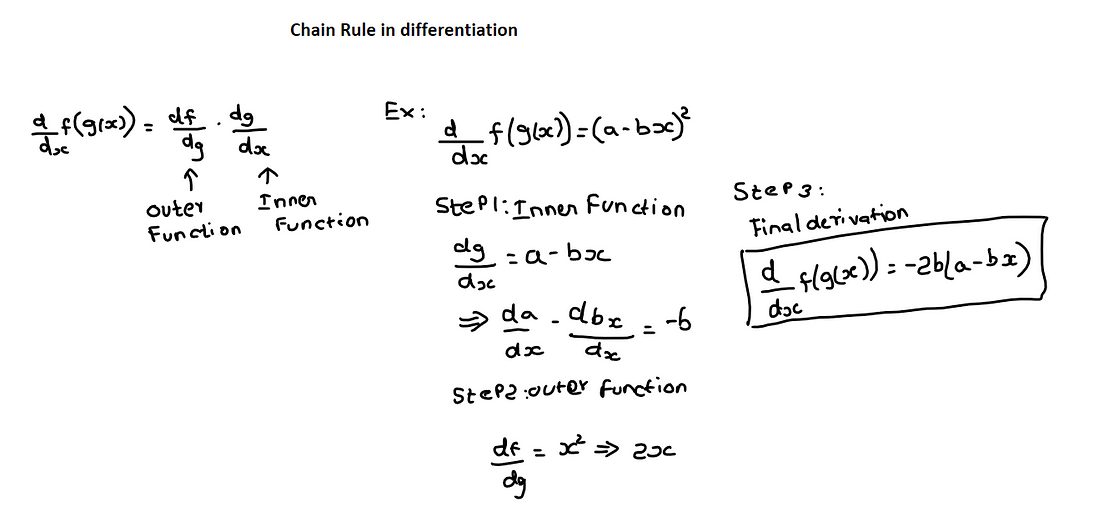 Chain Rule in differentiation
d/dx f(g(x)) = df/dg · dg/dx
↑ ↑
outer Function
Inner Function
Ex:
d/dx f(g(x)) = (a-bx)²
Step1: Inner Function
dg/dx = a-bx
⇒ da/dx - dbx/dx = -b
Step2: outer function
df/dg = x² ⇒ 2x
Step 3:
Final derivation
d/dx f(g(x)) = -2b(a-bx)